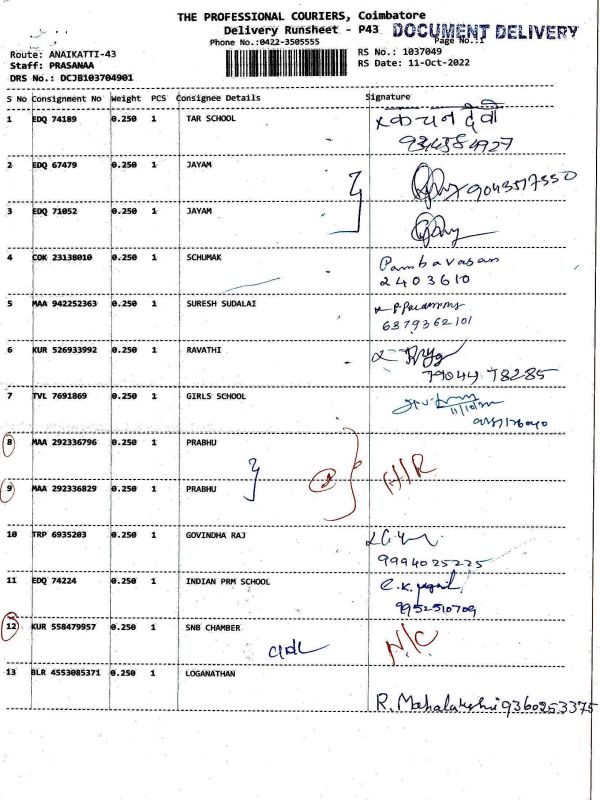 THE PROFESSIONAL COURIERS, Coimbatore
Delivery Runsheet - P43 DOCUMENT DELIVERY
Phone No.:0422-3505555 Page No.:1
Route: ANAIKATTI-43 RS No.: 1037049
Staff: PRASANAA RS Date: 11-Oct-2022
DRS No.: DCJB103704901
S No Consignment No Weight PCS Consignee Details Signature
1 EDQ 74189 0.250 1 TAR SCHOOL
2 EDQ 67479 0.250 1 JAYAM 9043517550
3 EDQ 71052 0.250 1 JAYAM
4 COK 23138010 0.250 1 SCHUMAK Pambavasan
2403610
5 MAA 942252363 0.250 1 SURESH SUDALAI
6379362101
6 KUR 526933992 0.250 1 RAVATHI
79044 78285
7 TVL 7691869 0.250 1 GIRLS SCHOOL
11/10/22
8 MAA 292336796 0.250 1 PRABHU
9 MAA 292336829 0.250 1 PRABHU
2 A/R
10 TRP 6935203 0.250 1 GOVINDHA RAJ
9994025225
11 EDQ 74224 0.250 1 INDIAN PRM SCHOOL
9952510709
12 KUR 558479957 0.250 1 SNB CHAMBER
N/C
13 BLR 4553085371 0.250 1 LOGANATHAN
R. Mahalakshmi 9360253375